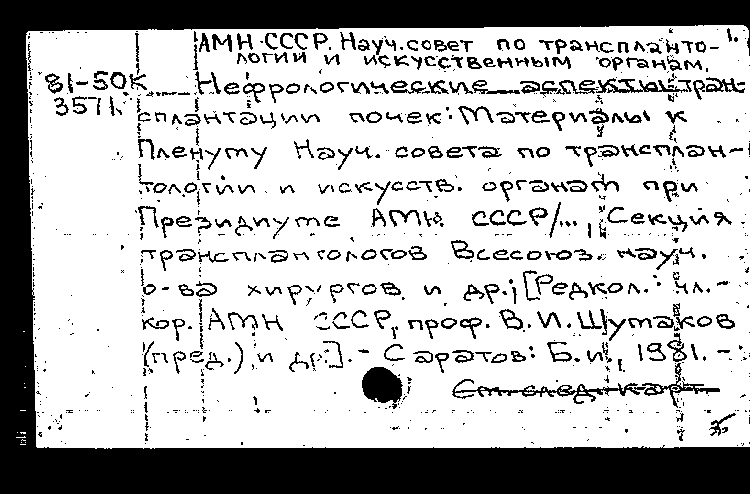 1.
АМН СССР. Науч. совет по транспланто-
логии и искусственным органам.
81-50К Нефрологические аспекты тран-
3571. сплантации почек: Материалы к
Пленуму Науч. совета по трансплан-
тологии и искусств. органам при
Президиуме АМН СССР/..., Секция
трансплантологов Всесоюз. науч.
о-ва хирургов и др.; [Редкол.: чл.-
кор. АМН СССР, проф. В. И. Шумаков
(пред.) и др.]. - Саратов: Б.и., 1981. -
См. след. карт.